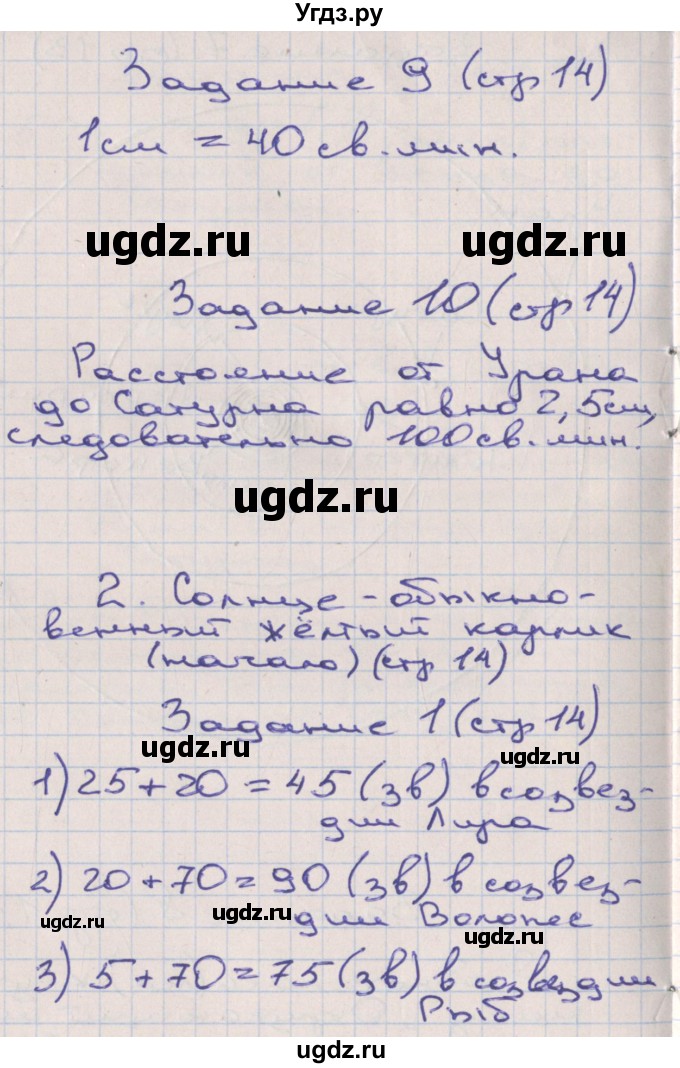 Угдз.ру
Задание 9 (стр 14)
1см = 40 св. мин.
ugdz.ru ugdz.ru
Задание 10 (стр 14)
Расстояние от Урана
до Сатурна равно 2,5см,
следовательно 100 св. мин.
ugdz.ru
2. Солнце - обыкно-
венный жёлтый карлик
(начало) (стр 14)
Задание 1 (стр 14)
ugdz.ru ugdz.ru
1) 25 + 20 = 45 (зв) в созвез-
дии Лира
2) 20 + 70 = 90 (зв) в созвез-
дии Волопес
ugdz.ru ugdz.ru ugdz.ru
3) 5 + 70 = 75 (зв) в созвездии
Рыб
ugdz.ru